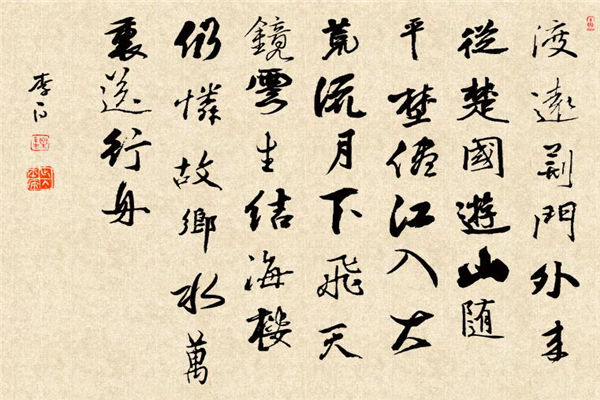 渡遠荆門外来
從楚國遊山随
平埜儘江入大
荒流月下飛天
鏡雲生結海樓
仍憐故鄉水萬
裏送行舟